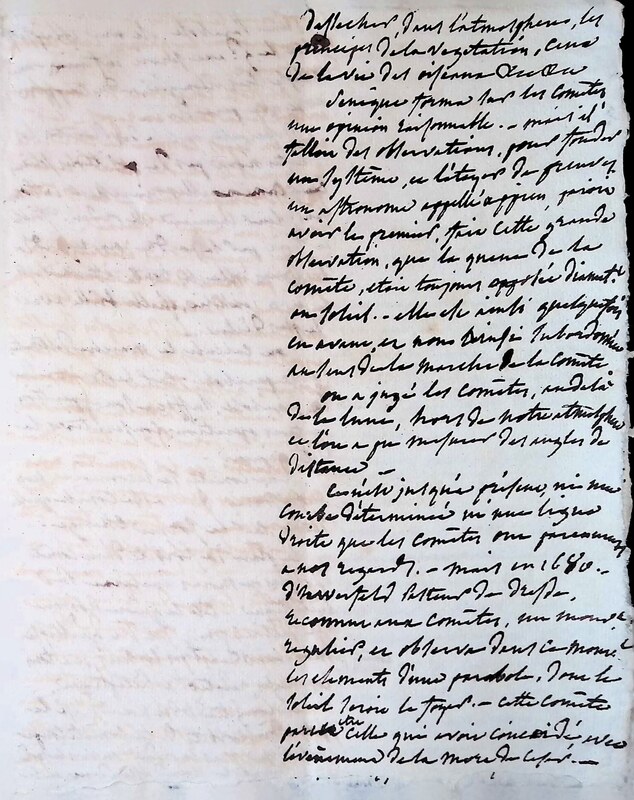 dessecher, dans l'atmosphere, les
principes de la vegetation, ceux
de la vie des oiseaux &c &c
Seneque forma sur les Cometes
une opinion raisonnable. - mais il
falloit des observations, pour fonder
un Systême, et l'étayer de preuves
un astronome appellé appien, paroit
avoir le premier, fait cette grande
observation, que la queue de la
Comète, etoit toujours opposée diamet.t
au soleil. - elle est ainsi quelquefois
en avant, et non subordonnée
au sens de la marche de la Comète
on a jugé les Comètes, au delà
de la lune, hors de notre atmosphere
et l'on a pu mesurer des angles de
distance -
Ce n'est jusqu'à présent, ni une
Courbe déterminée ni une ligne
droite que les Comètes ont parcouru
a nos regards. - mais en 1680. -
Pasteur de
reconnut aux Comètes, un mouv.t
regulier, et observa dans ce mouv.t
les elements d'une parabole, dont le
soleil seroit le foyer. - cette Comète
parut être celle qui avoit concordé avec
l'évènement de la mort de Cesar. -